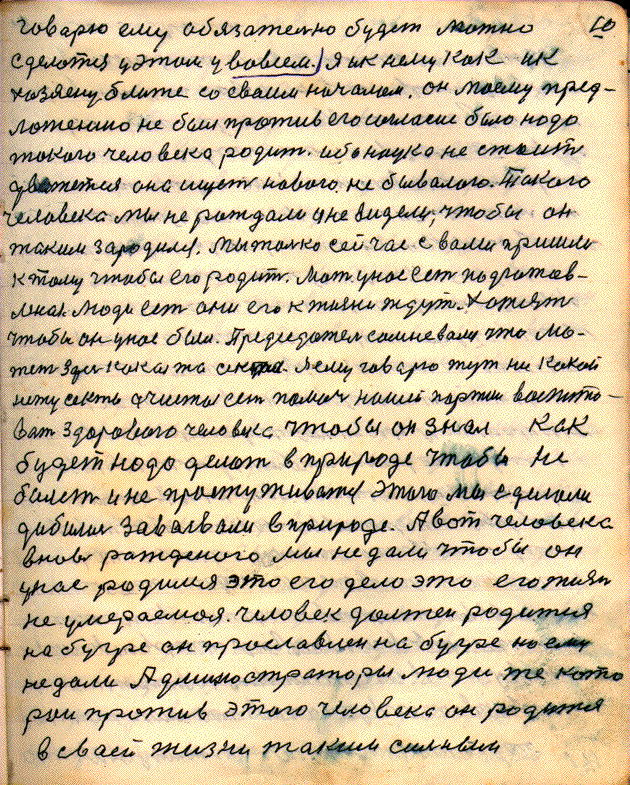 говарю ему обязателно будетможно 10
сделотся у этом у вовсем. Я ик нему как ик
хозяену ближе со сваим началом. он моему пред-
ложению не был против его согласие было надо
такого человека родит. ибо наука не стоит
движется она ищет нового не бывалого. Такого
человека мы не рождали и не видели, чтобы он
таким зародился. Мы толко сейчас с вами пришли
к тому чтобы его родит. Мат у нас ест подготов-
леная люди ест они его к жизни ждут. хотят
чтобы он у нас был. Председател сомневался что мо-
жет здес какая та секта. Я ему говарю тут ни какой
нету секты а чистая ест помоч нашей партии воспито-
ват здорового человека чтобы он знал как
будет надо делат в природе чтобы не
болет и не простуживатся этого мы сделали
дабились завоевали в природе. А вот человека
вновь рожденого мы не дали чтобы он
у нас родился это его дело это его жизн
не умераемая. Человек должен родится
на бугре он прославлен на бугре но ему
не дали Администраторы люди те кото
рои против этого человека он родится
в сваей жизни таким силным